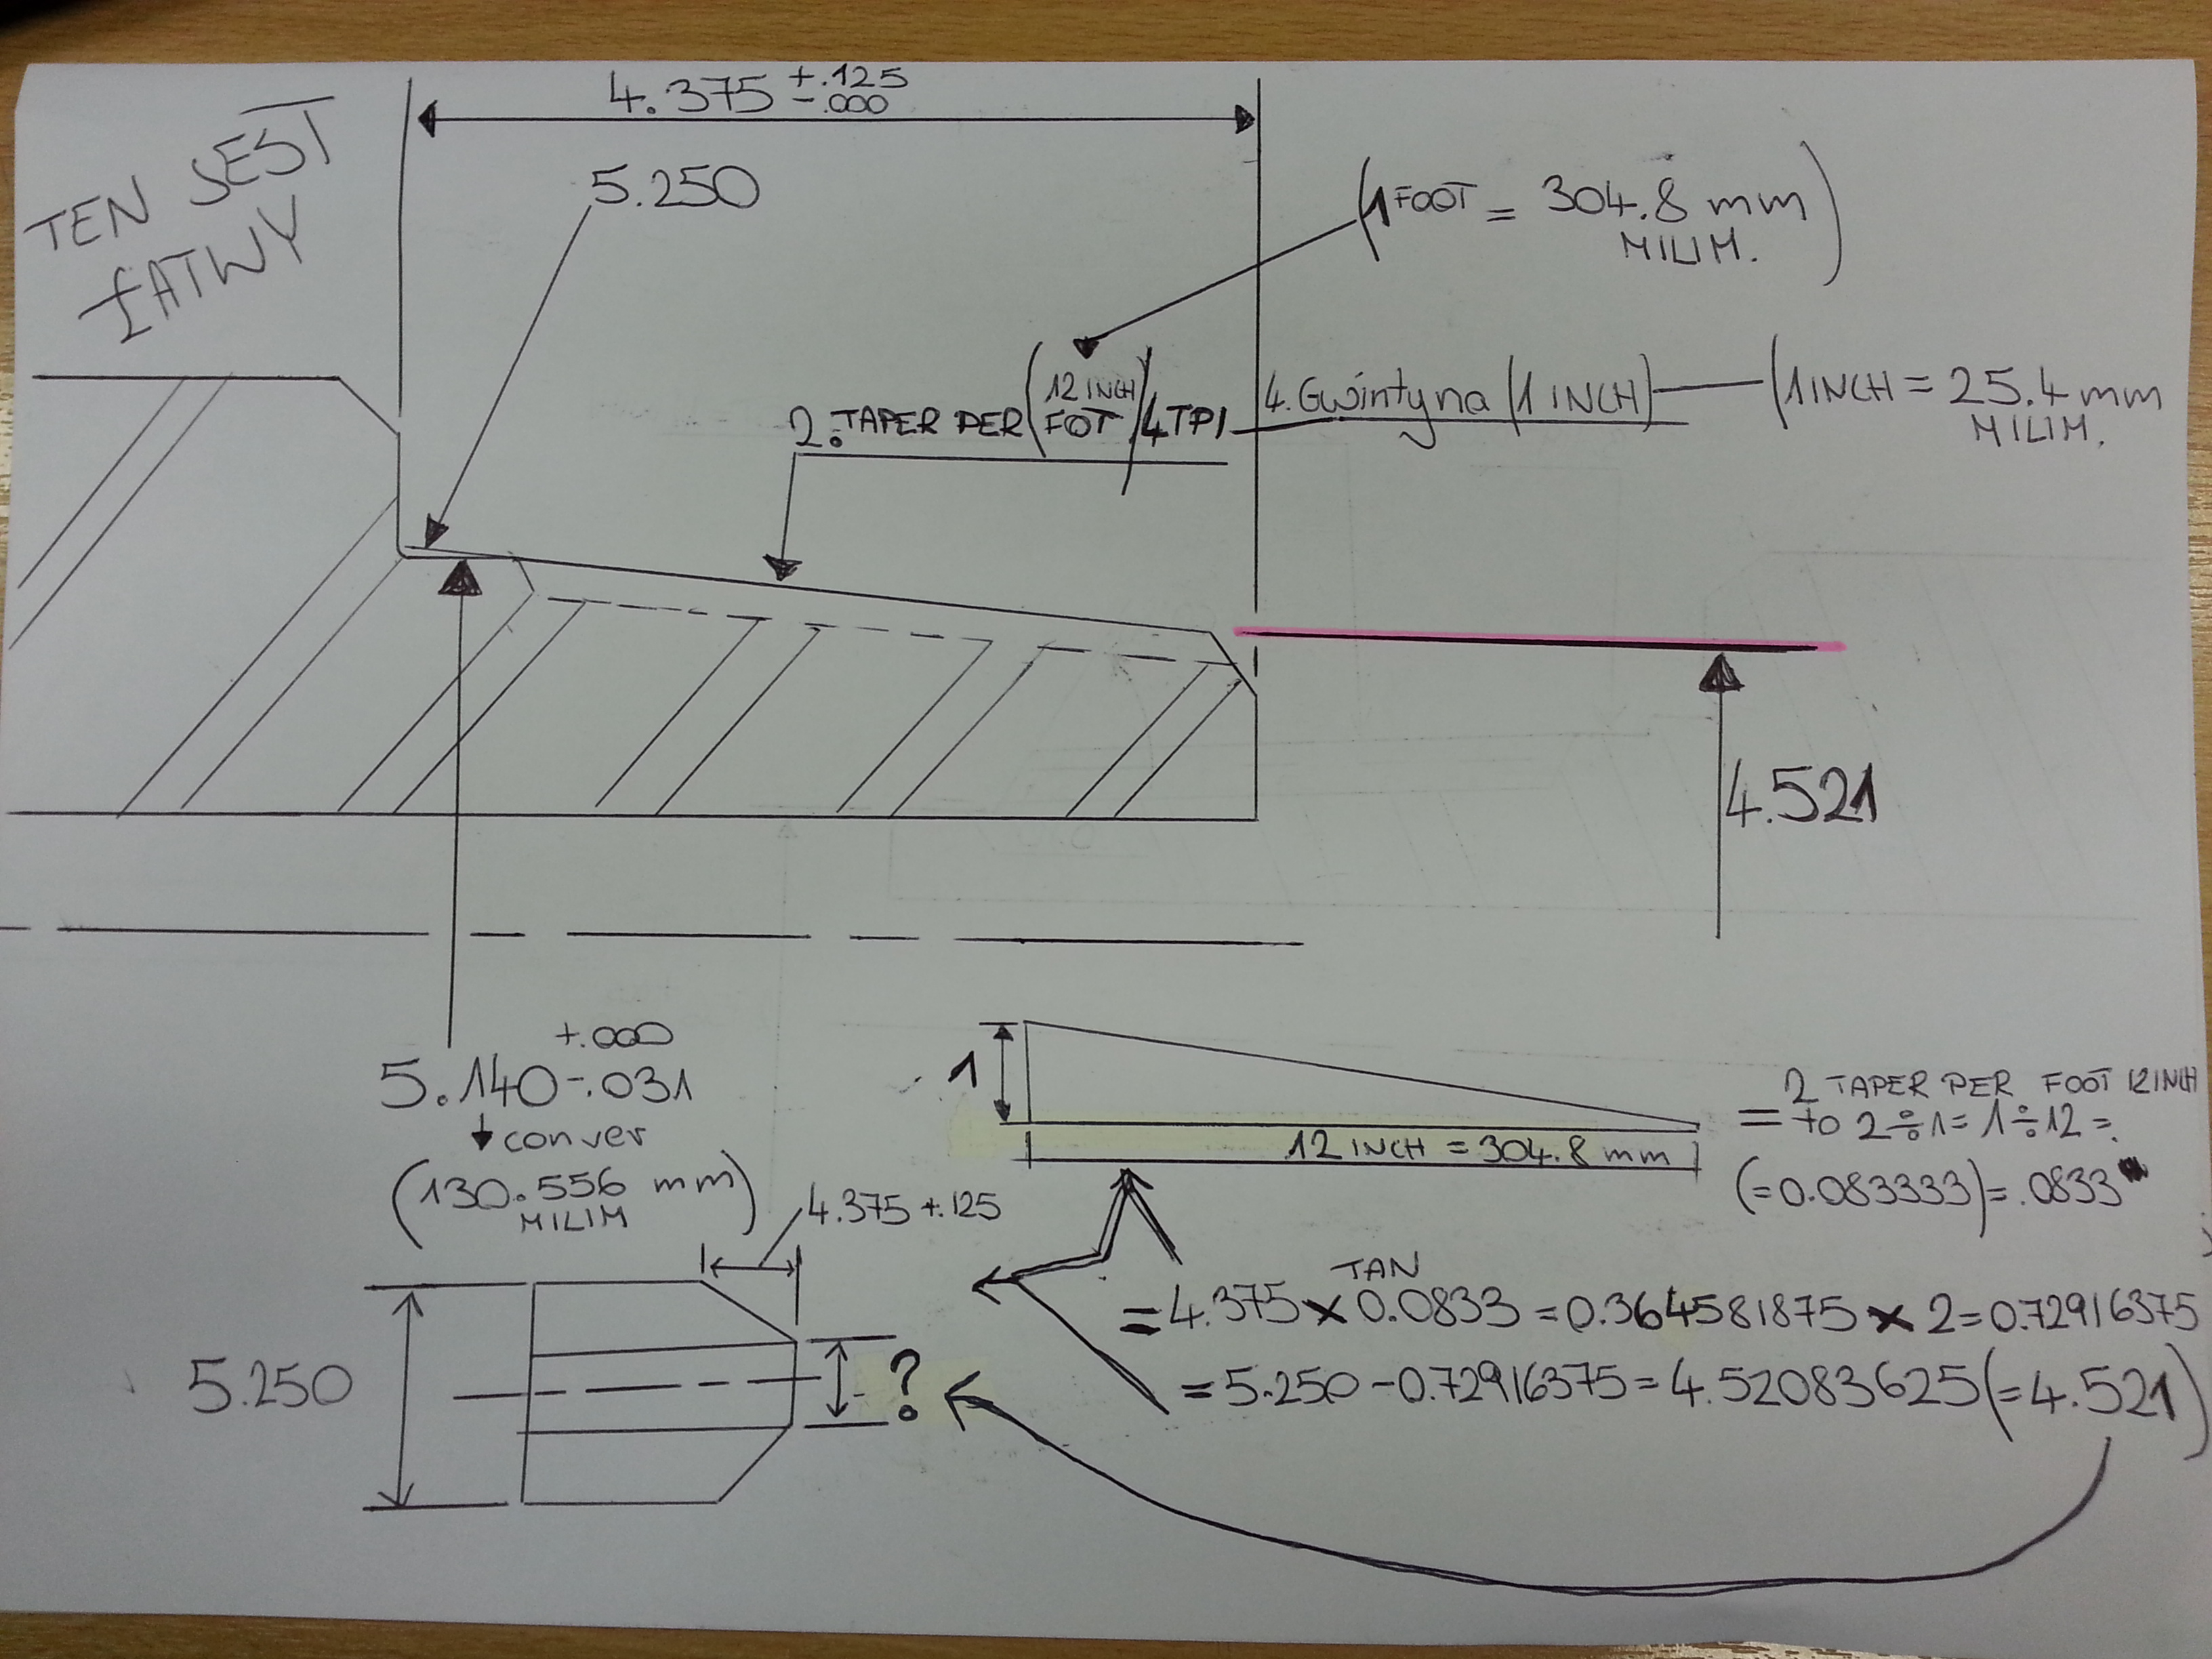 4.375 +.125
-.000
TEN JEST
ŁATWY
5.250
(1 FOOT = 304.8 mm)
MILIM.
2. TAPER PER (12 INCH FOT) / 4 TPI
4. Gwintyna (1 INCH)
(1 INCH = 25.4 mm
MILIM.
4.521
+.000
5.140 -.031
conver
(130.556 mm)
MILIM
4.375 +.125
5.250
?
1
12 INCH = 304.8 mm
2 TAPER PER FOOT 12 INCH
= to 2÷1= 1÷12 =
(=0.083333)= .0833
TAN
=4.375 x 0.0833 =0.364581875 x 2=0.72916375
=5.250 -0.72916375= 4.52083625 (=4.521)